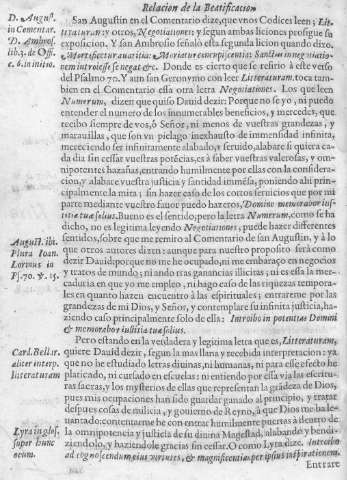 Relacion de la Beatificacion
D. August.
in Comentar.
D. Ambros.
lib. 3. de Offi.
c. 6. in initio.
San Augustin en el Comentario dize, que vnos Codices leen; Lit-
teraturam: y otros, Negotiationes: y segun ambas liciones prosigue su
exposicion. Y san Ambrosio señaló esta segunda licion quando dixo.
in negotiatio-
nem introisse se negat &c. Donde es cierto que se refirio à este verso
del Psalmo 70. Y aun san Geronymo con leer Litteraturam. toca tam
bien en el Comentario essa otra letra Negotiationes. Los que leen
Numerum, dizen que quiso Dauid dezir: Porque no se yo, ni puedo
entender el numero de los innumerables beneficios, y mercedes, que
recibo siempre de vos, ó Señor, ni menos de vuestras grandezas, y
marauillas, que son vn pielago inexhausto de immensidad infinita,
mereciendo ser infinitamente alabado, y seruido, alabare si quiera ca-
da dia sin cessar vuestras potẽcias, es à saber vuestras valerosas, y om-
nipotentes hazañas, entrando humilmente por ellas con la considera-
cion, y alabare vuestra justicia y santidad inmẽsa, poniendo ahi prin-
cipalmente la mira; sin hazer caso de los cortos seruicios que por mi
parte mediante vuestro fauor puedo hazeros, Domine memorabor ius-
titiæ tuæ solius. Bueno es el sentido, pero la letra Numerum, como se ha
dicho, no es legitima leyendo Negotiationes, puede hazer diferentes
sentidos, sobre que me remito al Comentario de san Augustin, y à lo
August. ibi.
Plura Ioan.
Lorinus in
Ps. 70. v. 15.
que otros autores dizen: aunque para nuestro proposito será como
dezir Dauid: porque no me he ocupado, ni me embaraço en negocios
y tratos de mundo; ni ando tras ganancias illicitas; ni es essa la mer-
caduria en que yo me empleo, ni hago caso de las riquezas tempora-
les en quanto hazen encuentro à las espirituales; entrareme por las
grandezas de mi Dios, y Señor, y contemplare su infinita justicia, ha-
ziendo caso principalmente solo de ella: Introibo in potentias Domini
& memorabor iustitiæ tuæ solius.
Pero estando en la verdadera y legitima letra que es, Litteraturam,
Card. Bellar.
aliter interp.
litteraturam
quiere Dauid dezir, segun la mas llana y recebida interpretacion: ya
que no he estudiado letras diuinas, ni humanas, ni para esse efecto he
platicado, ni cursado en escuelas: ni entiendo por essa via las escritu-
ras sacras, y los mysterios de ellas que representan la grãdeza de Dios,
pues mis ocupaciones han sido guardar ganado al principio, y tratar
despues cosas de milicia, y gouierno de Reyno, à que Dios me ha le-
uantado: contentarme he con entrar humilmente puertas à dentro de
la omnipotencia y justicia de su diuina Magestad, alabando y bendi-
Lyra in glos.
super hunc
locum.
ziendolo, y haziendole gracias sin cessar. O como Lyra dize. Introibo
ad cognoscendum eius virtutes, & magnificentias per ipsius inspirationem.
Entrare